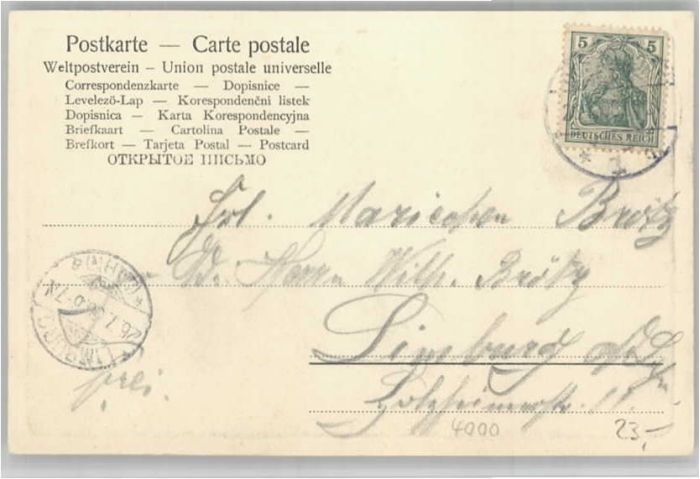 Postkarte — Carte postale
Weltpostverein – Union postale universelle
Correspondenzkarte — Dopisnice —
Levelező-Lap — Korespondenční listek
Dopisnica — Karta Korespondencyjna
Briefkaart — Cartolina Postale —
Brefkort — Tarjeta Postal — Postcard
ОТКРЫТОЕ ПИСЬМО
5 5
DEUTSCHES REICH
Frl. Mariechen Brötz
Herrn Wilh. Brötz
Limburg
frei.
Holzheimerstr.
4000
23,-